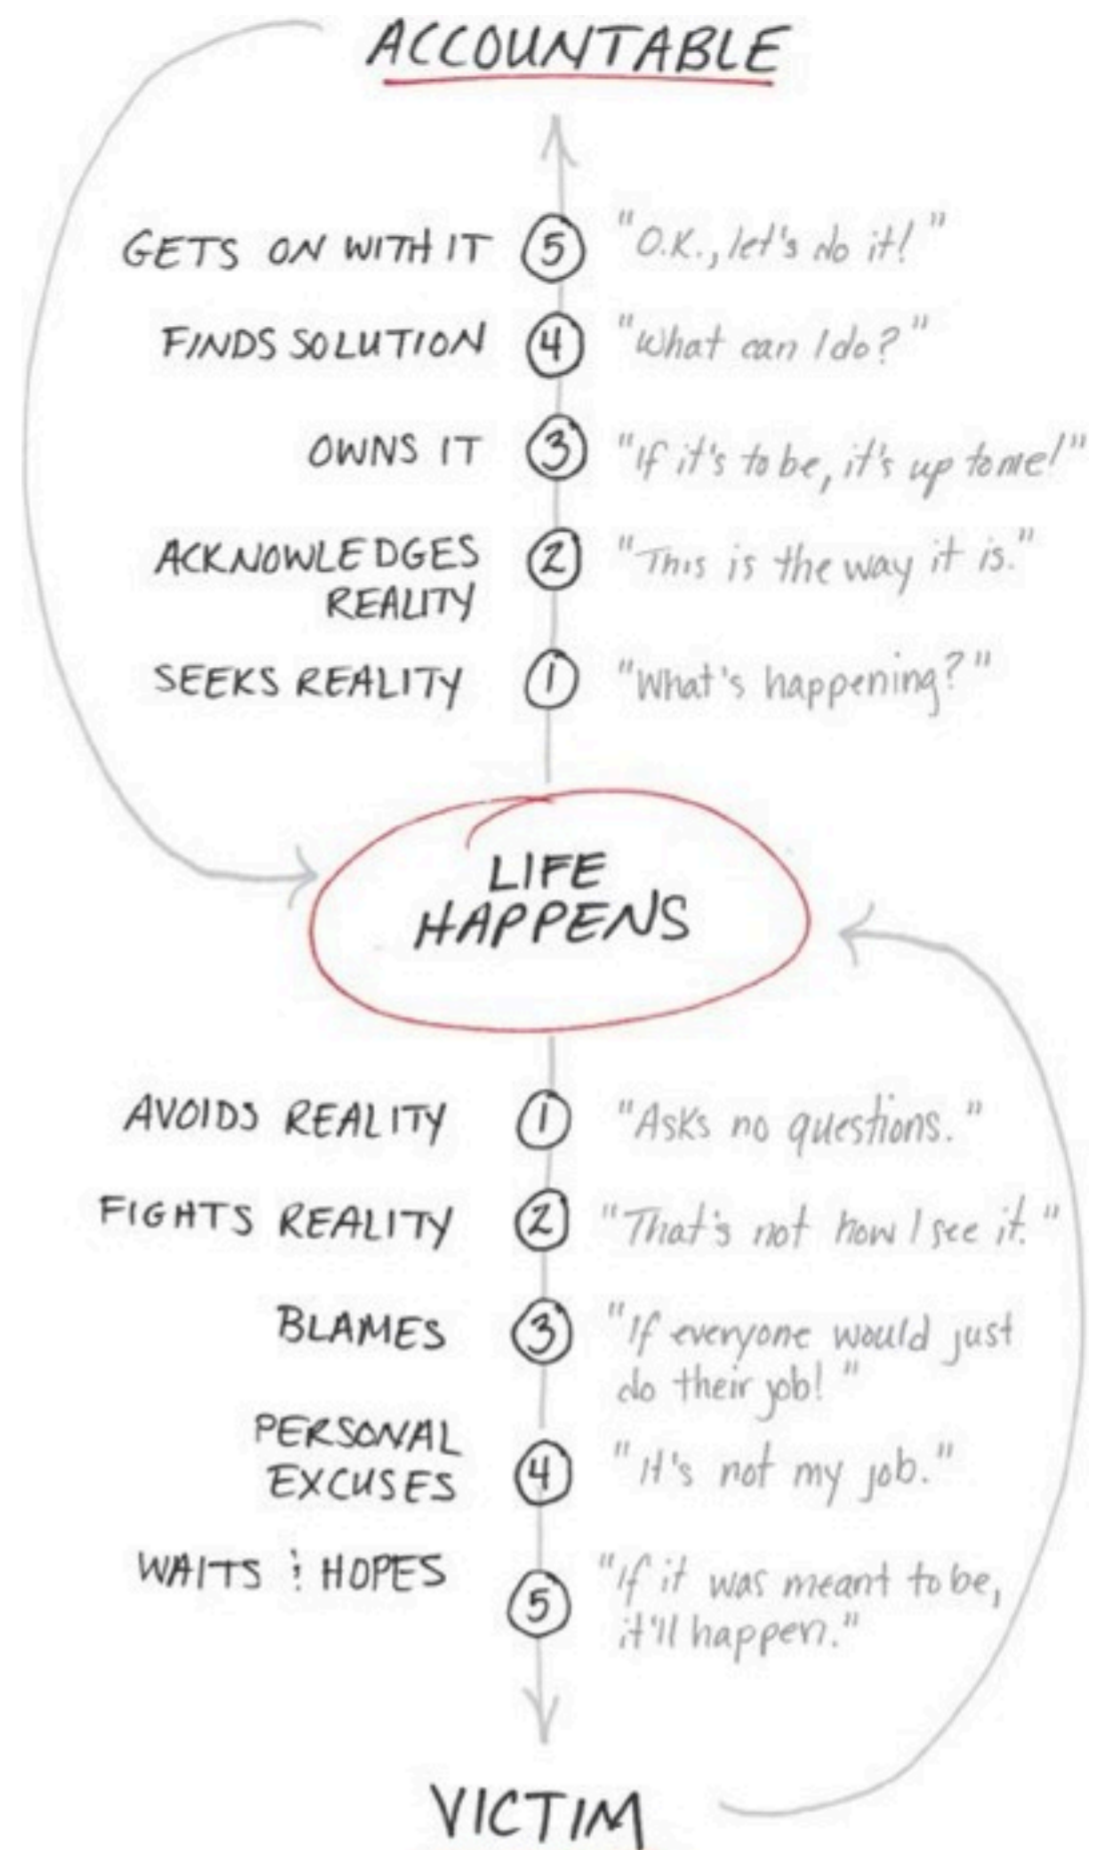 ACCOUNTABLE
GETS ON WITH IT 5 "O.K., let's do it!"
FINDS SOLUTION 4 "What can I do?"
OWNS IT 3 "If it's to be, it's up to me!"
ACKNOWLEDGES 2 "This is the way it is."
REALITY
SEEKS REALITY 1 "What's happening?"
LIFE
HAPPENS
AVOIDS REALITY 1 "Asks no questions."
FIGHTS REALITY 2 "That's not how I see it."
BLAMES 3 "If everyone would just
do their job!"
PERSONAL
EXCUSES 4 "It's not my job."
WAITS & HOPES 5 "If it was meant to be,
it'll happen."
VICTIM